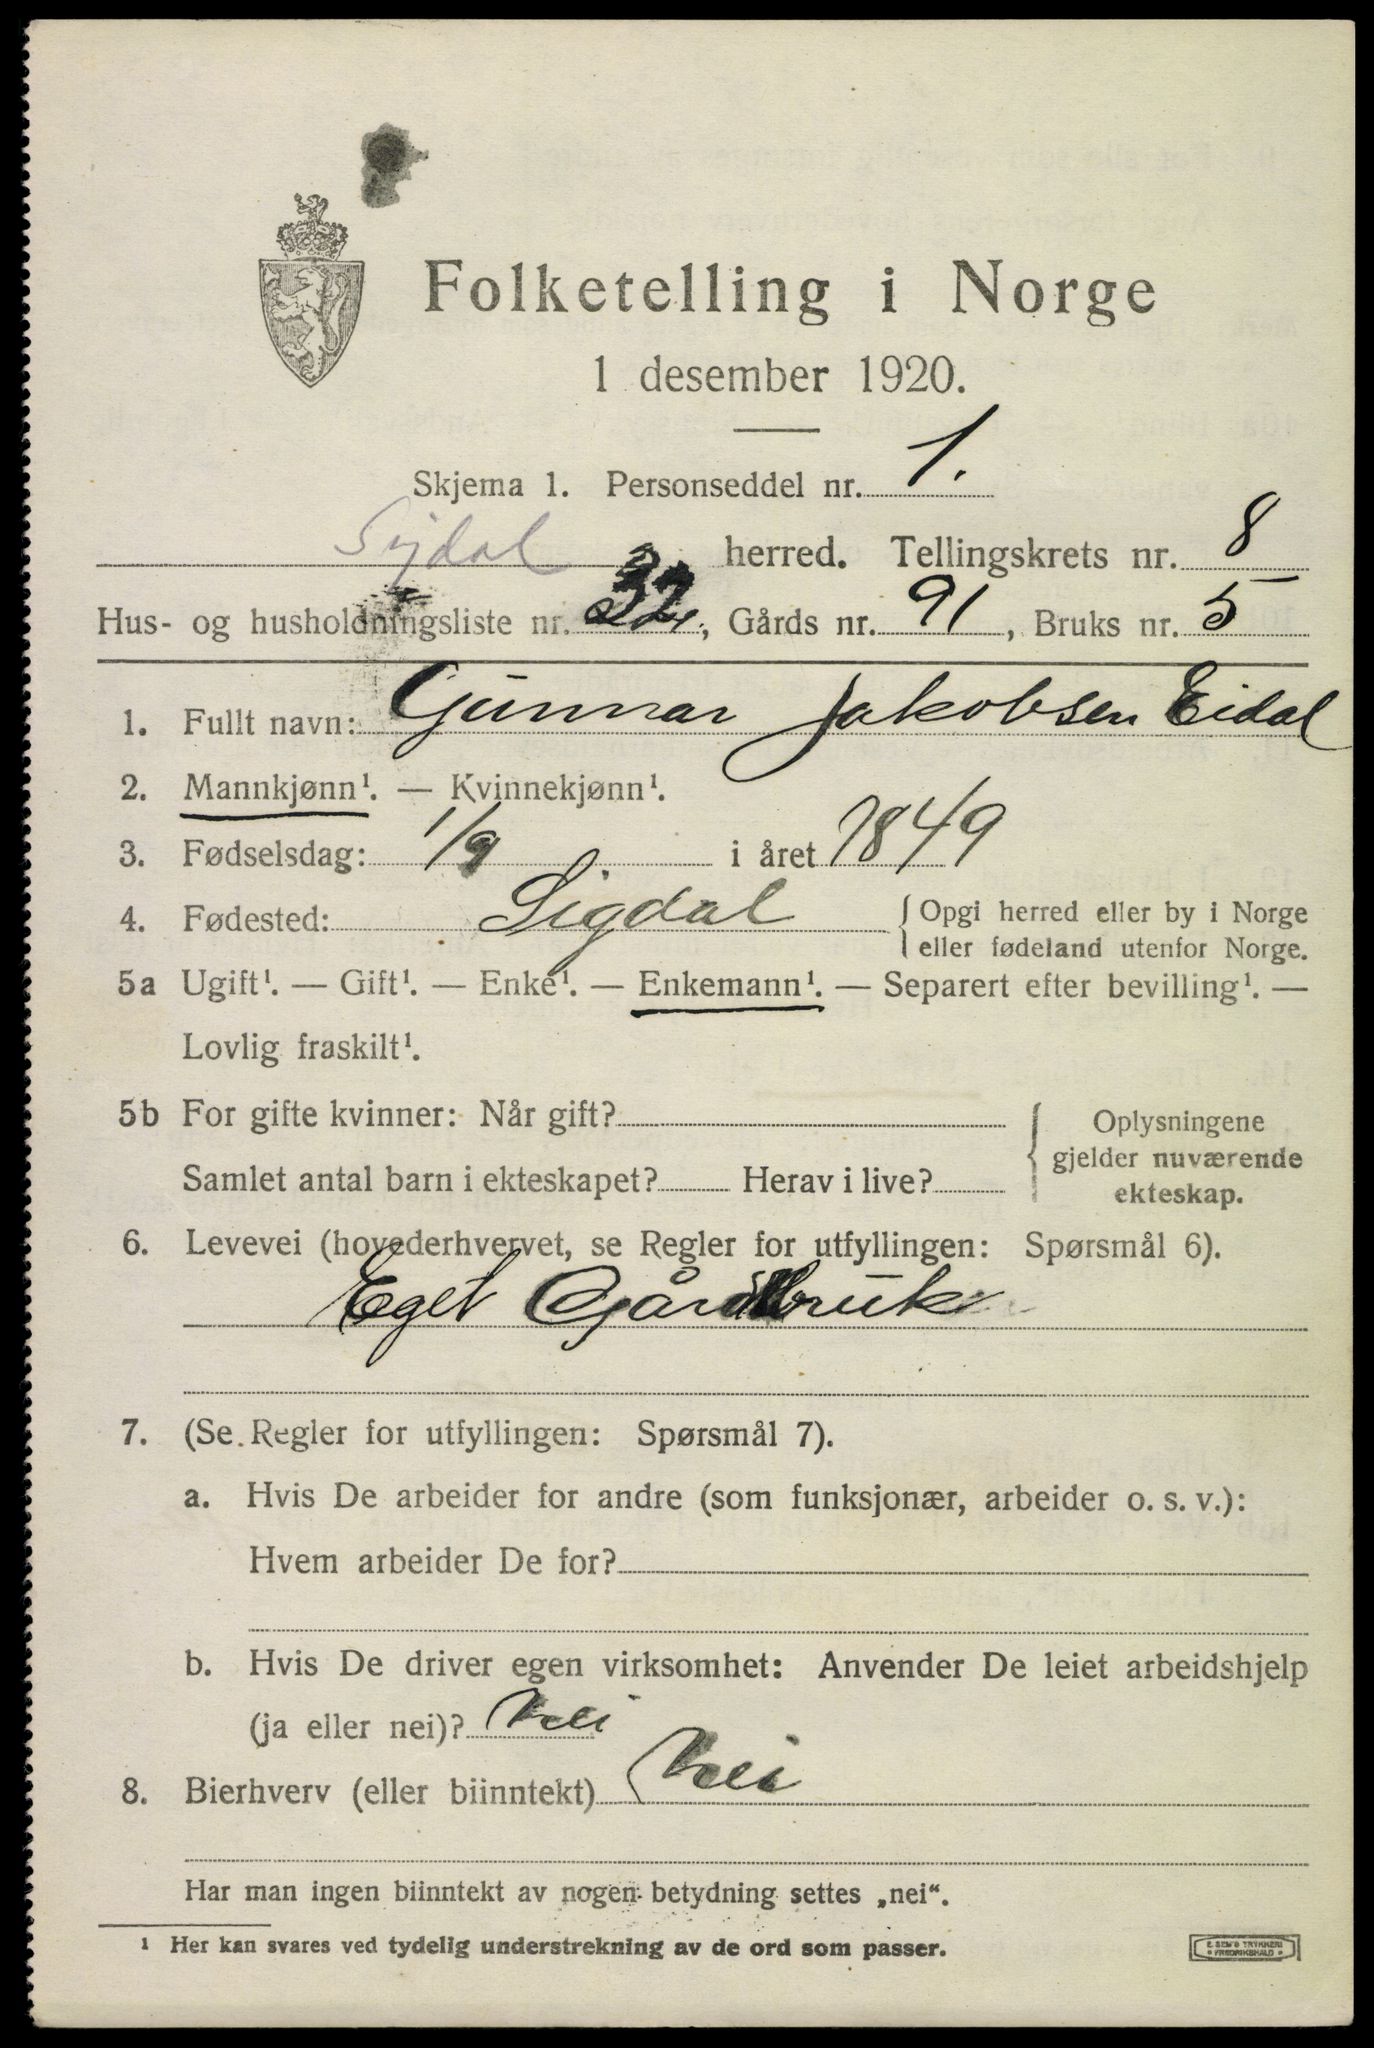 Folketelling i Norge
1 desember 1920.
Skjema 1. Personseddel nr. 1.
Sigdal herred. Tellingskrets nr. 8
Hus- og husholdningsliste nr. 32, Gårds nr. 91, Bruks nr. 5
1. Fullt navn: Gunnar Jakobsen Eidal
2. Mannkjønn¹. — Kvinnekjønn¹.
3. Fødselsdag: 1/9 i året 1849
4. Fødested: Sigdal { Opgi herred eller by i Norge
eller fødeland utenfor Norge.
5a Ugift¹. — Gift¹. — Enke¹. — Enkemann¹. — Separert efter bevilling¹. —
Lovlig fraskilt¹.
5b For gifte kvinner: Når gift? { Oplysningene
gjelder nuværende
Samlet antal barn i ekteskapet? Herav i live?
ekteskap.
6. Levevei (hovederhvervet, se Regler for utfyllingen: Spørsmål 6).
Eget Gårdsbruk
7. (Se Regler for utfyllingen: Spørsmål 7).
a. Hvis De arbeider for andre (som funksjonær, arbeider o. s. v.):
Hvem arbeider De for?
b. Hvis De driver egen virksomhet: Anvender De leiet arbeidshjelp
(ja eller nei)? Nei
8. Bierhverv (eller biinntekt) Nei
Har man ingen biinntekt av nogen betydning settes „nei“.
¹ Her kan svares ved tydelig understrekning av de ord som passer.
E. SEM'S TRYKKERI
FREDRIKSHALD